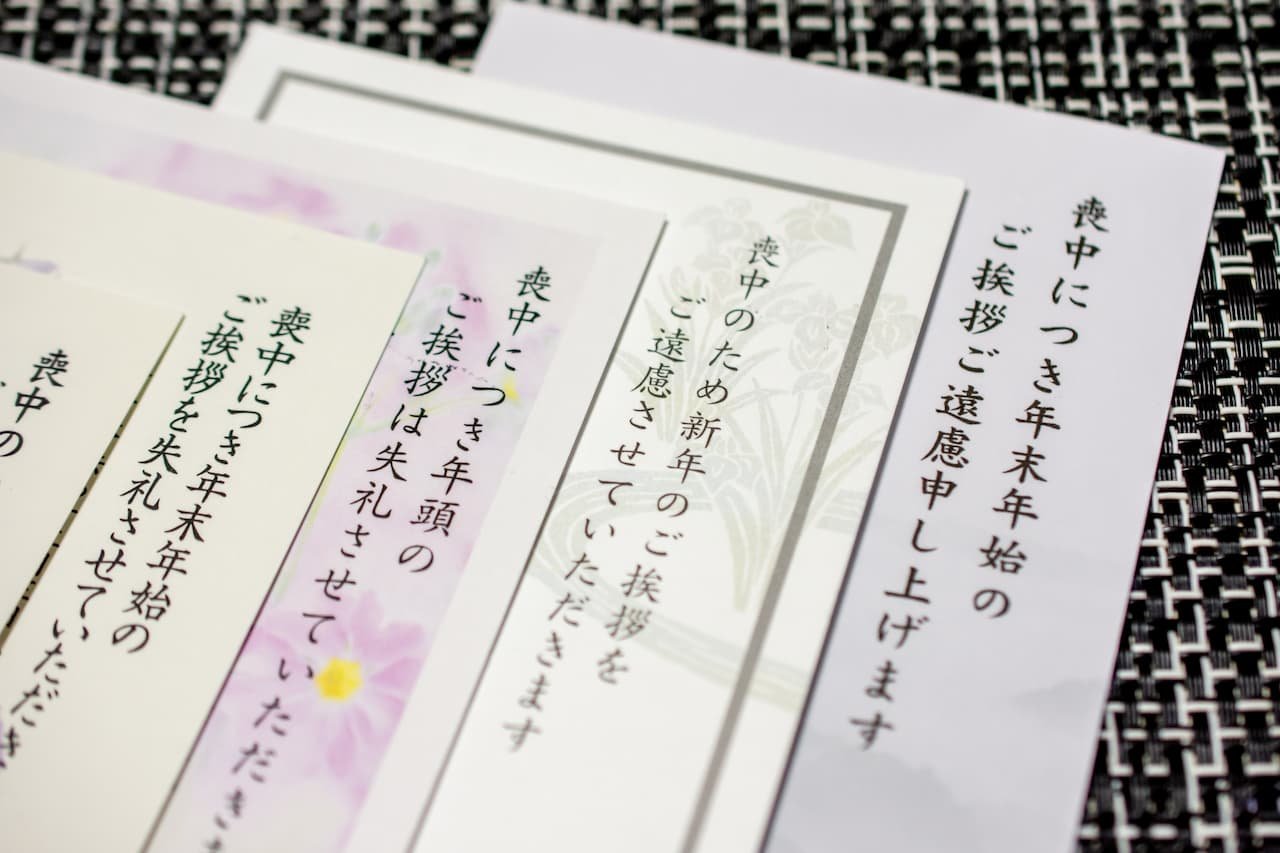 喪中につき年末年始の
ご挨拶ご遠慮申し上げます
喪中のため新年のご挨拶を
ご遠慮させていただきます
喪中につき年頭の
ご挨拶は失礼させていただき
喪中につき年末年始の
ご挨拶を失礼させていただき
喪中の